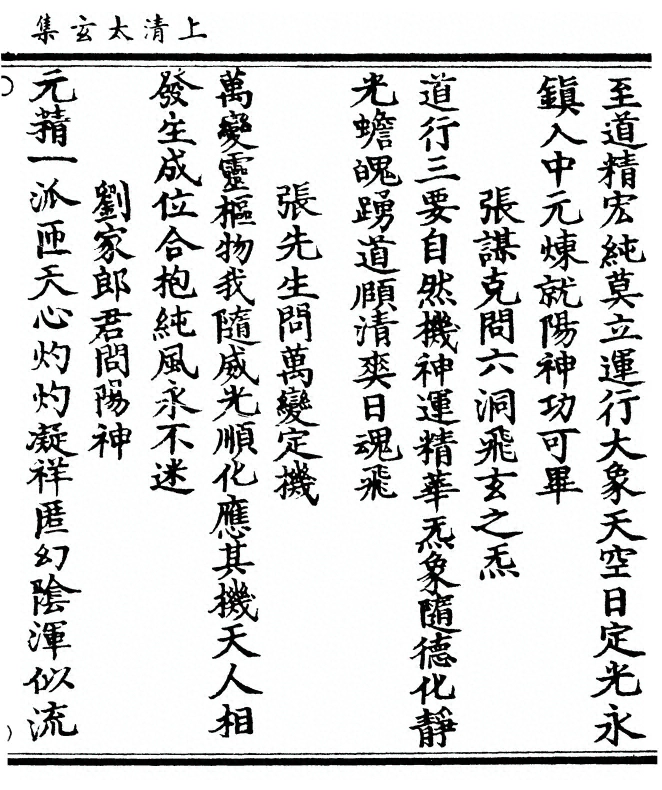 上清太玄集
至道精宏純莫立運行大象天空日定光永
鎮入中元煉就陽神功可畢
張謀克問六洞飛玄之炁
道行三要自然機神運精華炁象隨德化靜
光蟾魄踴道頋清爽日魂飛
張先生問萬變定機
萬變靈樞物我隨威光順化應其機天人相
發生成位合抱純風永不迷
劉家郎君問陽神
元精一派匝天心灼灼凝祥匿幻陰渾似流